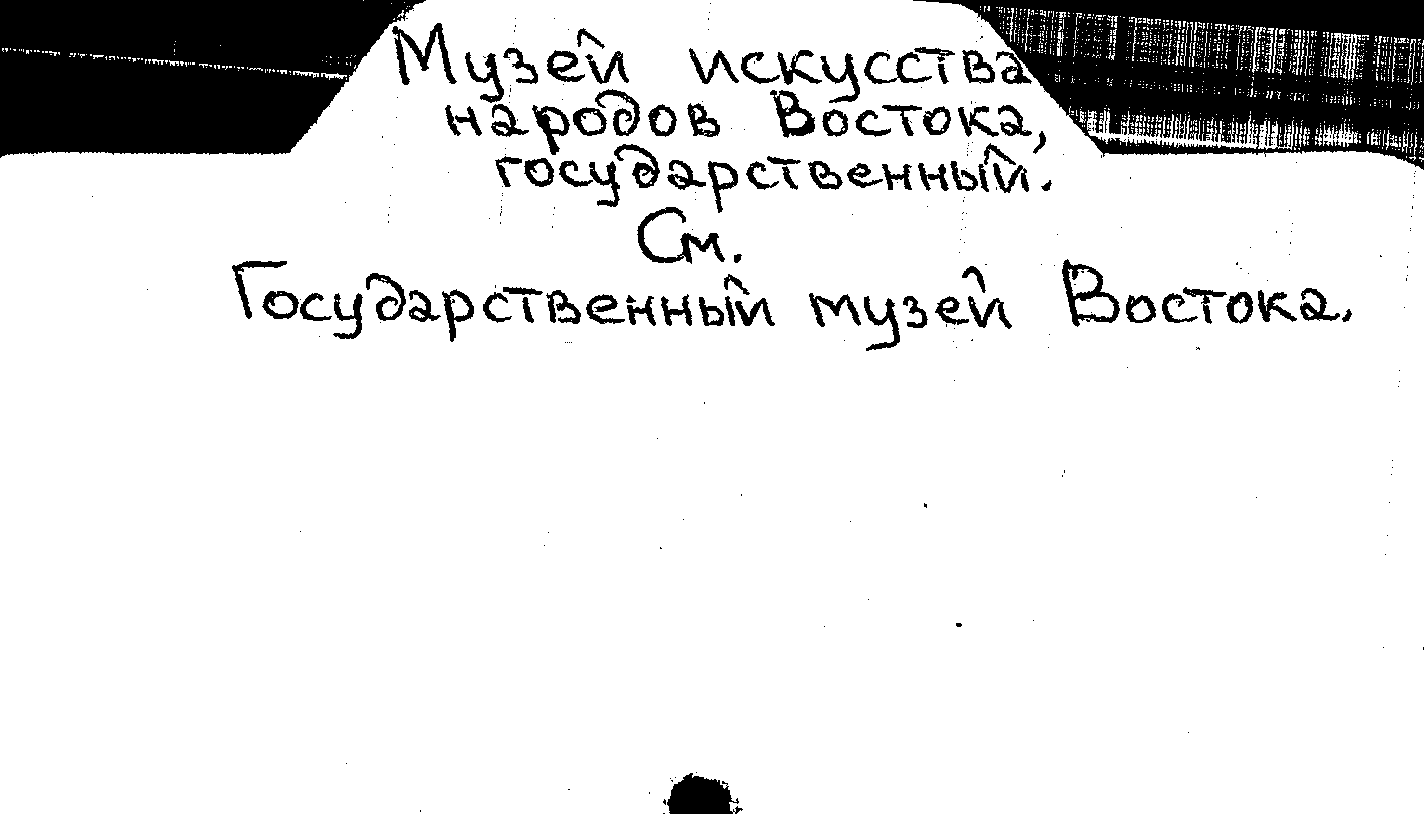 Музей искусства
народов Востока,
государственный.
См.
Государственный музей Востока.